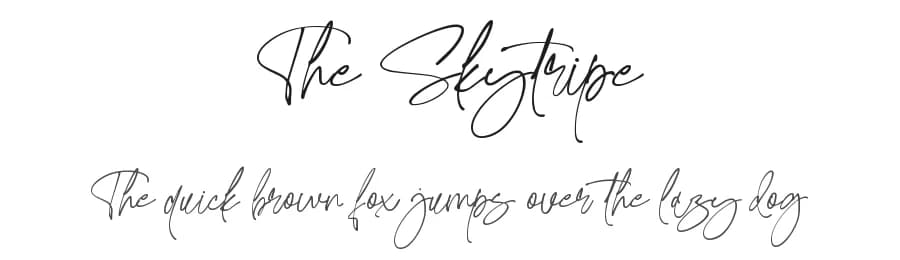 The Skytripe
The quick brown fox jumps over the lazy dog